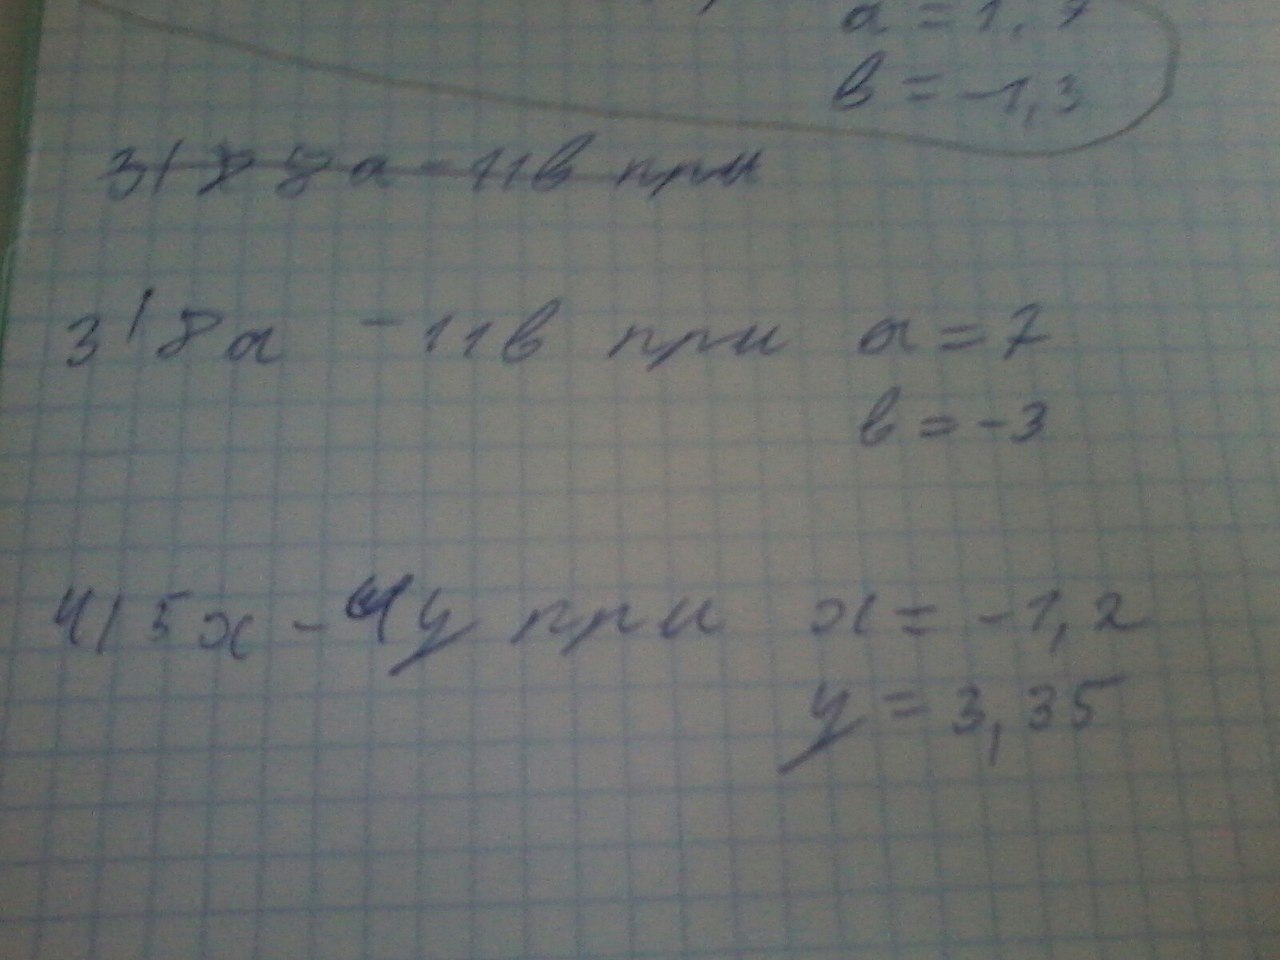 a = 1,7
в = -1,3
3) 8 8a - 11в при
3) 8a - 11в при a = 7
в = -3
4) 5x - 4y при x = -1,2
y = 3,35